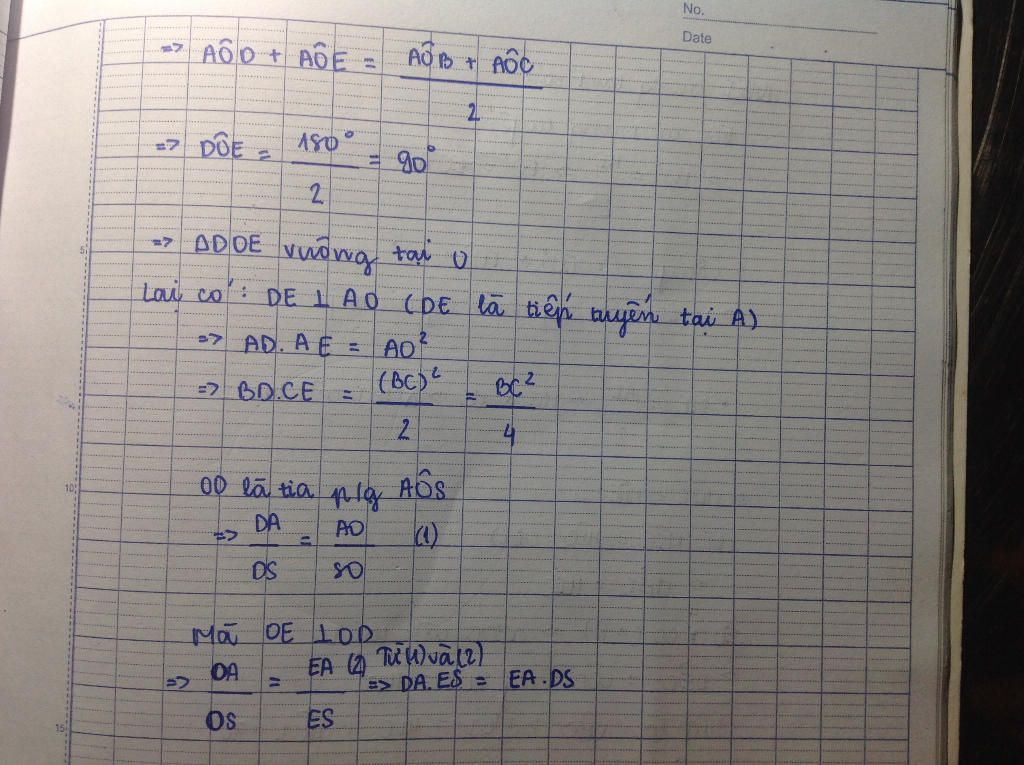 No.
Date
=> AÔD + AÔE = (AÔB + AÔC)/2
=> DÔE = 180°/2 = 90°
=> ΔDOE vuông tại O
Lại có: DE ⊥ AO (DE là tiếp tuyến tại A)
=> AD.AE = AO²
=> BD.CE = (BC)²/2 = BC²/4
OD là tia p/g AÔS
=> DA/DS = AO/SO (1)
Mà OE ⊥ OD
=> OA/OS = EA/ES (2) Từ (1) và (2) => DA.ES = EA.DS
5
10
15